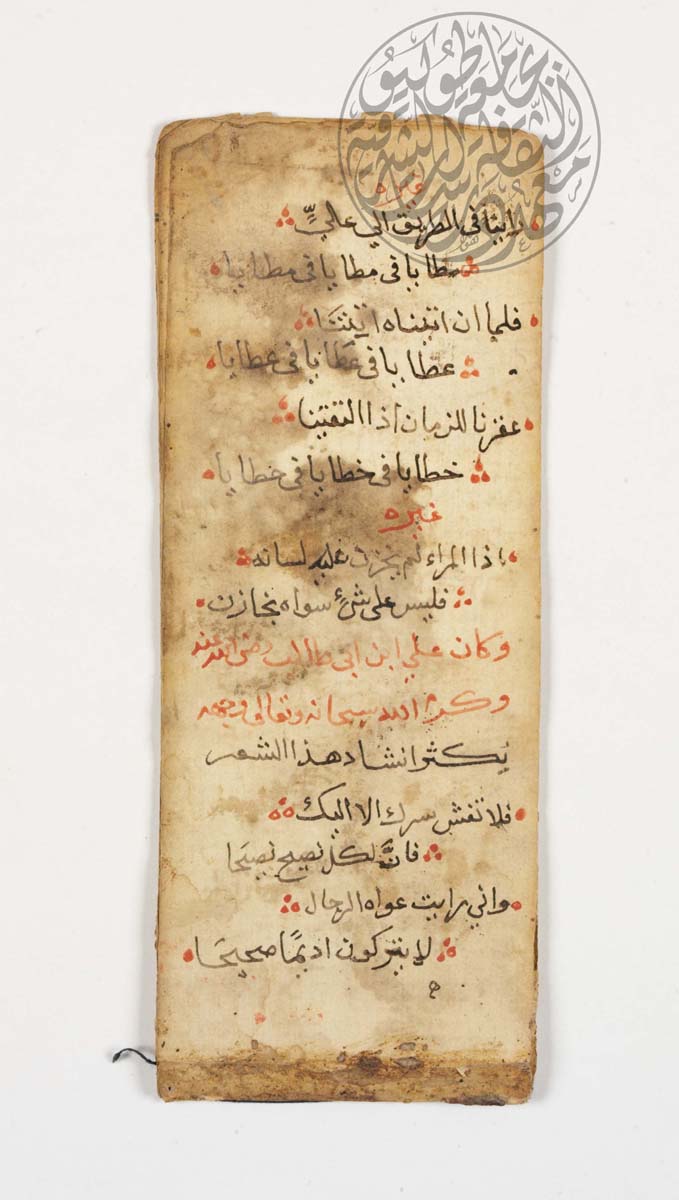 غيره
رايتنا في الطريق الي عاليٍّ
مطايا في مطايا في مطايا
فلما ان اتيناه اتيتنا
عطايا في عطايا في عطايا
غفرنا للزمان اذا التقينا
خطايا في خطايا في خطايا
غيره
اذا المراء لم يخزن عليه لسانه
فليس على شئ سواه بخازن
وكان علي ابن ابي طالب رضي الله عنه
وكرم الله سبحانه وتعالى وجهه
يكثر انشاد هذا الشعر
فلا تفش سرك الا اليك
فانَّ لكل نصيح نصيحا
واني رايت عواه الرجال
لا يتركون اديمًا صحيحا